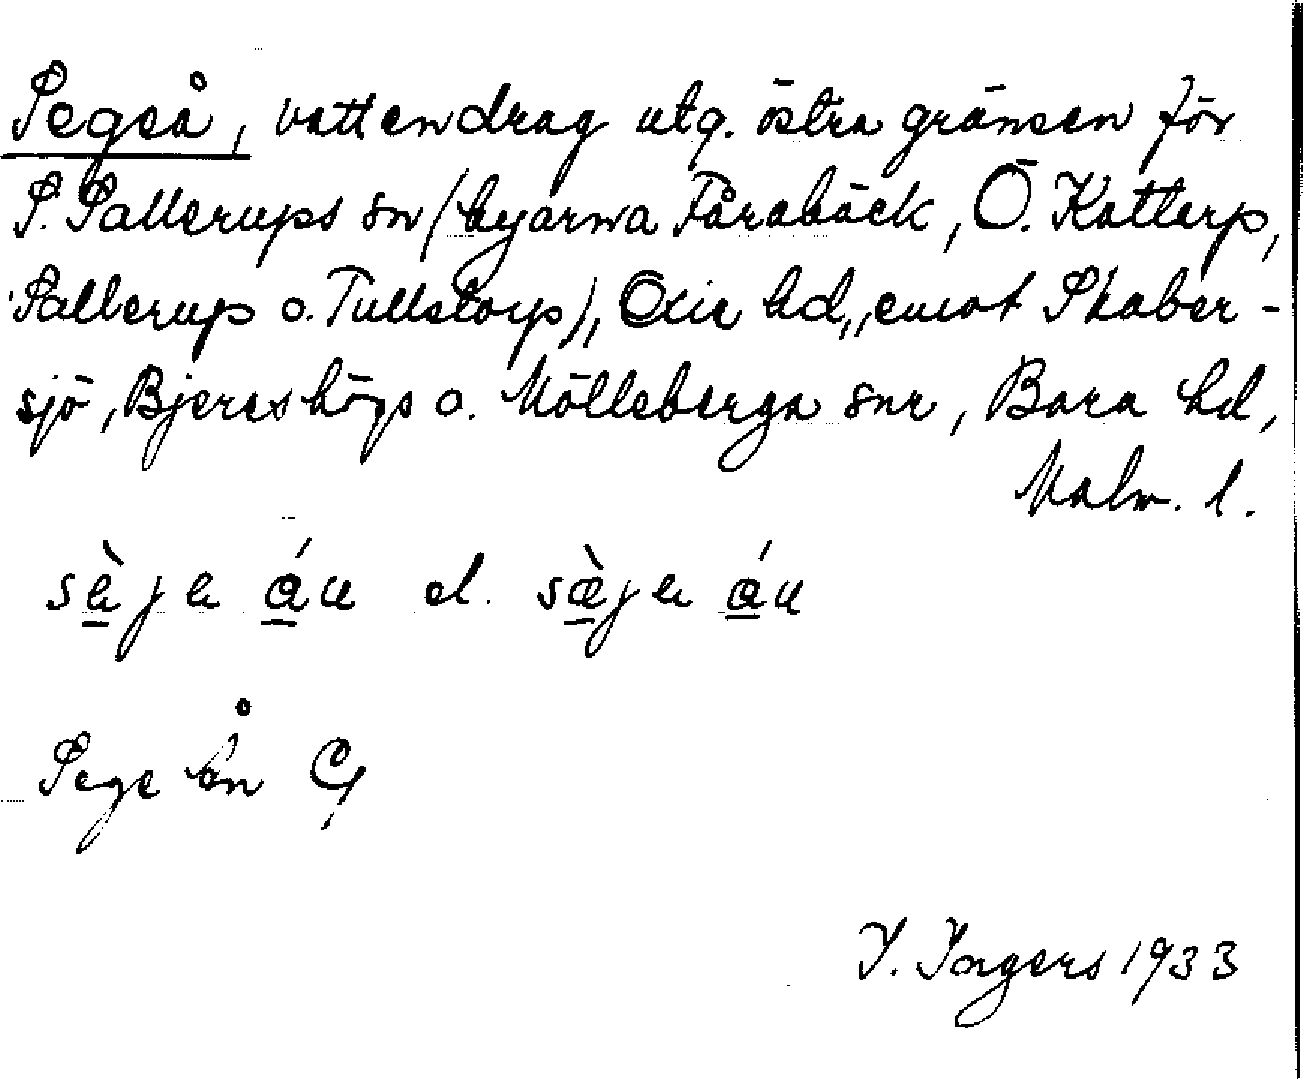 Segeå, vattendrag utg. östra gränsen för
S. Sallerups sn (byarna Fårabäck, Ö. Kattarp,
Sallerup o. Tullstorp), Oxie hd, emot Skaber-
sjö, Bjereshögs o. Mölleberga snr, Bara hd,
Malm. l.
sèje áu el. sæ̀je áu
Sege ån G
I. Ingers 1933